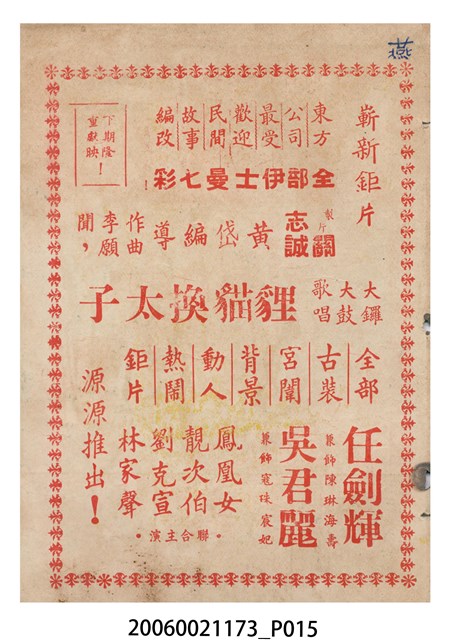 燕
嶄新鉅片
東方
公司
最受
歡迎
民間
故事
編改
全部伊士曼七彩！
下期隆
重獻映！
製片
關志誠
黃岱編導
作曲
李願
聞，
大鑼
大鼓
歌唱
貍貓換太子
全部
古裝
宮闈
背景
動人
熱鬧
鉅片
源源推出！
任劍輝
兼飾陳琳海壽
吳君麗
兼飾寇珠宸妃
鳳凰女
靚次伯
劉克宣
林家聲
•聯合主演•
20060021173_P015